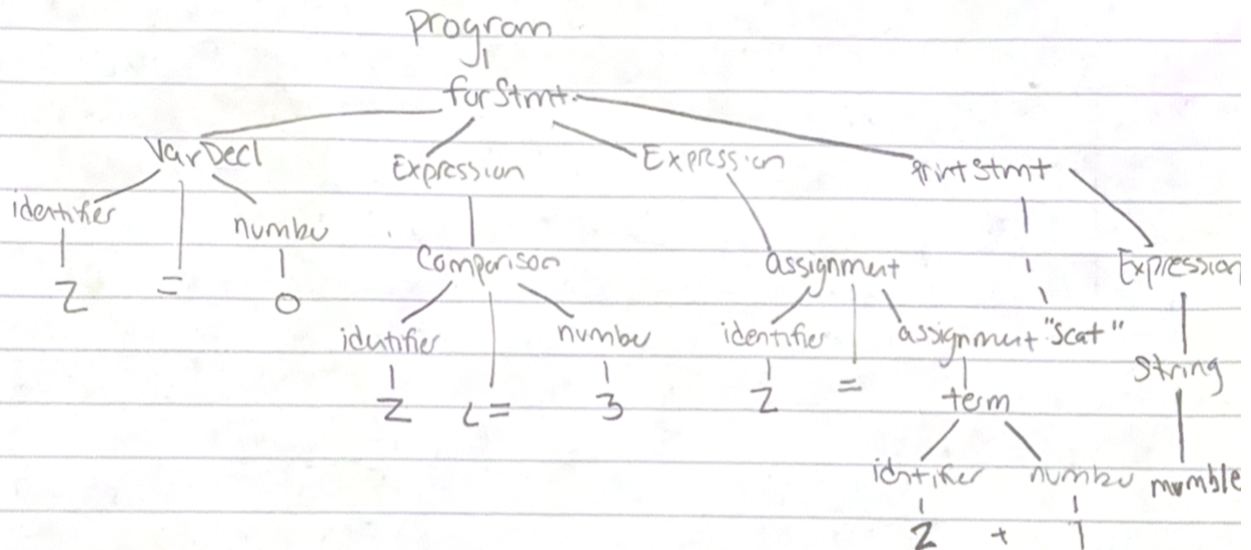 Program
forStmt
VarDecl Expression Expression PrintStmt
identifier number
Comparison assignment Expression
Z = 0
identifier number identifier assignment "Scat"
String
Z <= 3 Z = term
identifier number mumble
Z + 1